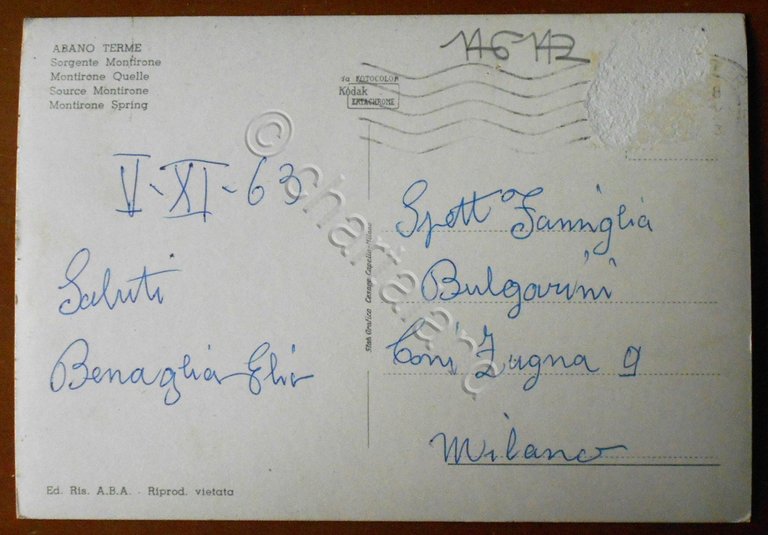 ABANO TERME
Sorgente Montirone
Montirone Quelle
Source Montirone
Montirone Spring
da FOTOCOLOR
Kodak
EKTACHROME
V-XI-63
Saluti
Benaglia Elia
Spett Famiglia
Bulgarini
Zugna 9
Milano
Stab. Grafico Cesare Capello-Milano
Ed. Ris. A.B.A. - Riprod. vietata
© charta